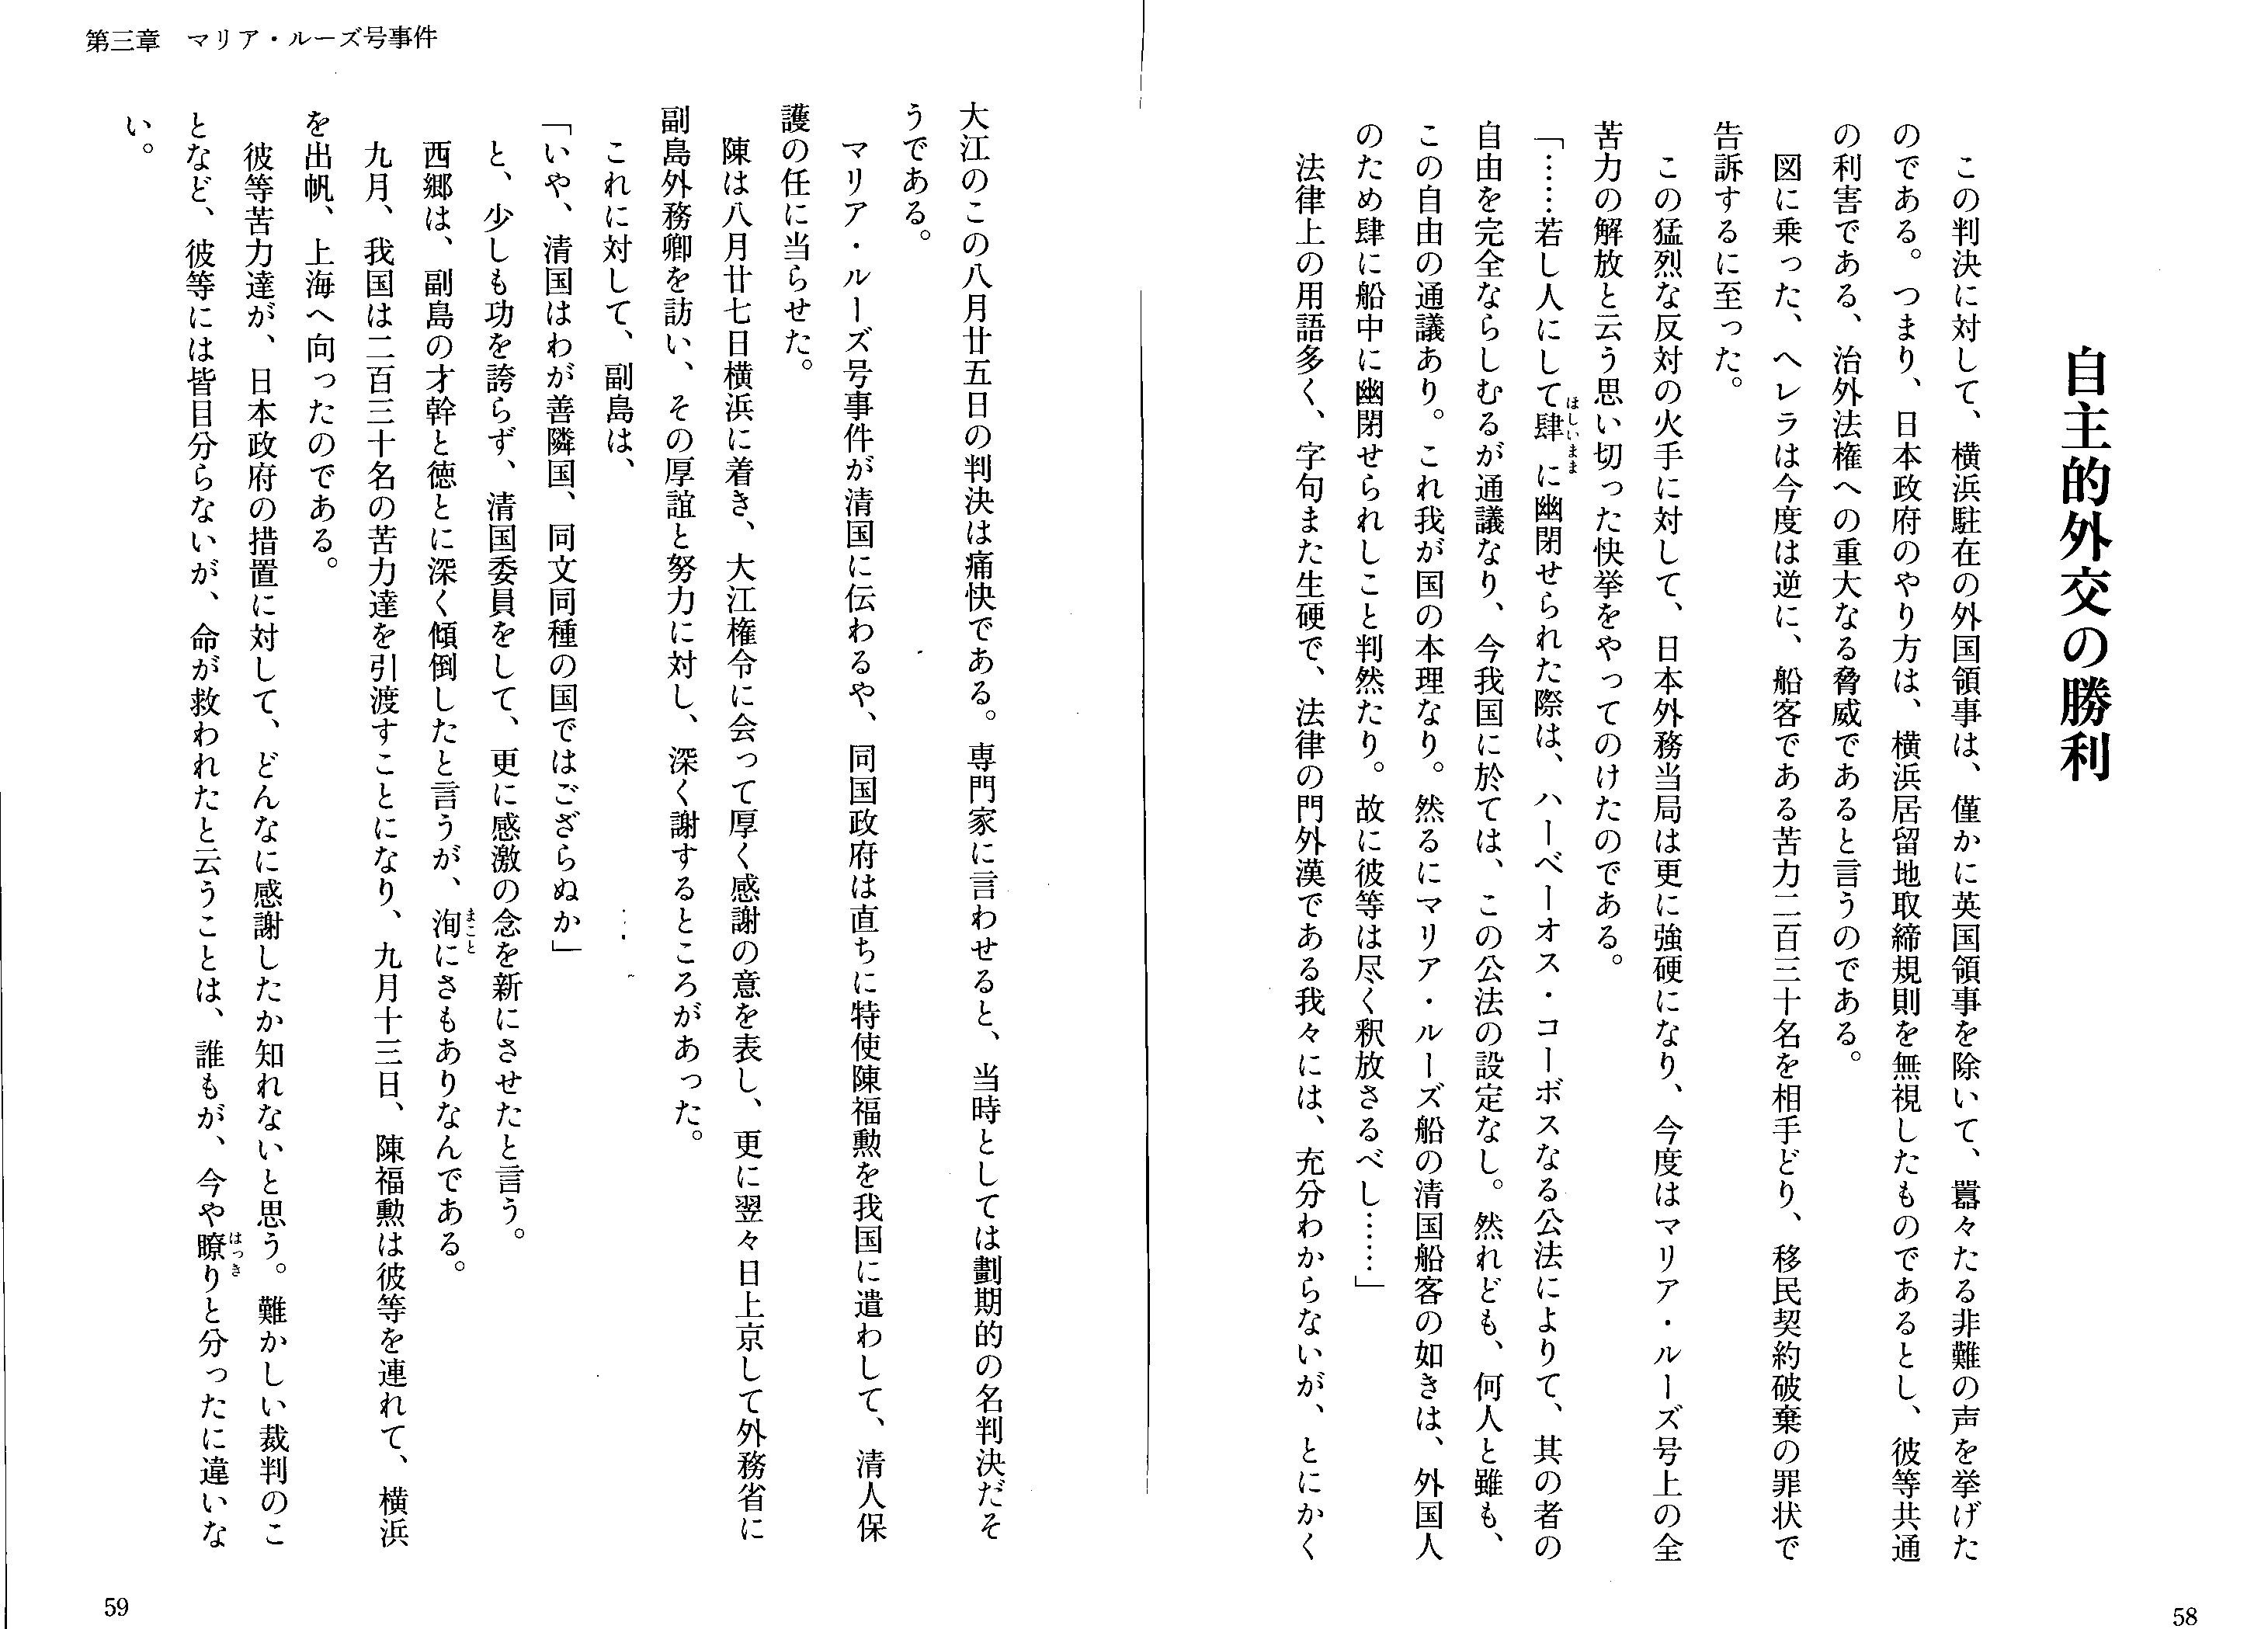 自主的外交の勝利
この判決に対して、横浜駐在の外国領事は、僅かに英国領事を除いて、囂々たる非難の声を挙げた
のである。つまり、日本政府のやり方は、横浜居留地取締規則を無視したものであるとし、彼等共通
の利害である、治外法権への重大なる脅威であると言うのである。
図に乗った、ヘレラは今度は逆に、船客である苦力二百三十名を相手どり、移民契約破棄の罪状で
告訴するに至った。
この猛烈な反対の火手に対して、日本外務当局は更に強硬になり、今度はマリア・ルーズ号上の全
苦力の解放と云う思い切った快挙をやってのけたのである。
「……若し人にして肆ほしいままに幽閉せられた際は、ハーベーオス・コーボスなる公法によりて、其の者の
自由を完全ならしむるが通議なり、今我国に於ては、この公法の設定なし。然れども、何人と雖も、
この自由の通議あり。これ我が国の本理なり。然るにマリア・ルーズ船の清国船客の如きは、外国人
のため肆に船中に幽閉せられしこと判然たり。故に彼等は尽く釈放さるべし……」
法律上の用語多く、字句また生硬で、法律の門外漢である我々には、充分わからないが、とにかく
58
第三章　マリア・ルーズ号事件
大江のこの八月廿五日の判決は痛快である。専門家に言わせると、当時としては劃期的の名判決だそ
うである。
マリア・ルーズ号事件が清国に伝わるや、同国政府は直ちに特使陳福勲を我国に遣わして、清人保
護の任に当らせた。
陳は八月廿七日横浜に着き、大江権令に会って厚く感謝の意を表し、更に翌々日上京して外務省に
副島外務卿を訪い、その厚誼と努力に対し、深く謝するところがあった。
これに対して、副島は、
「いや、清国はわが善隣国、同文同種の国ではござらぬか」
と、少しも功を誇らず、清国委員をして、更に感激の念を新にさせたと言う。
西郷は、副島の才幹と徳とに深く傾倒したと言うが、洵まことにさもありなんである。
九月、我国は二百三十名の苦力達を引渡すことになり、九月十三日、陳福勲は彼等を連れて、横浜
を出帆、上海へ向ったのである。
彼等苦力達が、日本政府の措置に対して、どんなに感謝したか知れないと思う。難かしい裁判のこ
となど、彼等には皆目分らないが、命が救われたと云うことは、誰もが、今や瞭はっきりと分ったに違いな
い。
59